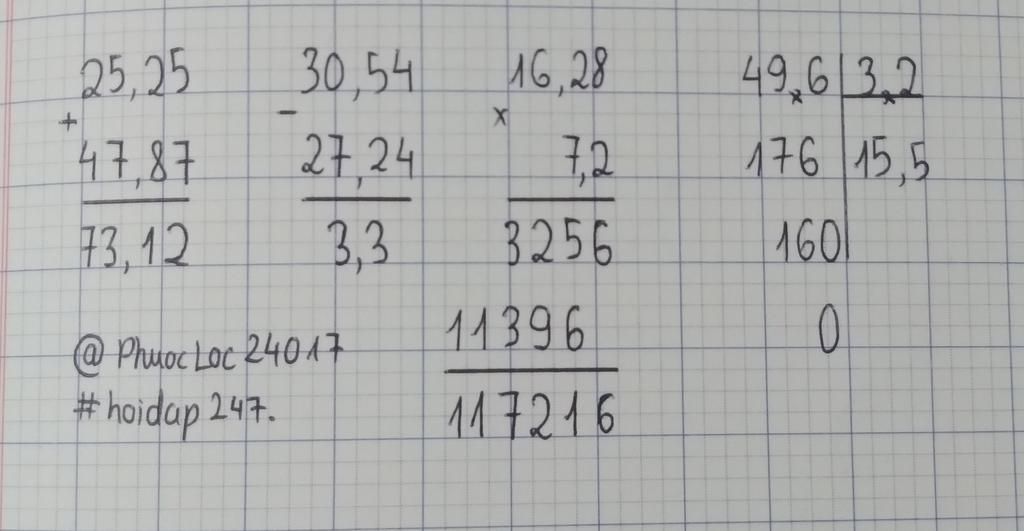 25,25
+
47,87
73,12
30,54
-
27,24
3,3
16,28
x
7,2
3256
11396
117216
49,6 3,2
176 15,5
160
0
@PhuocLoc24017
#hoidap247.